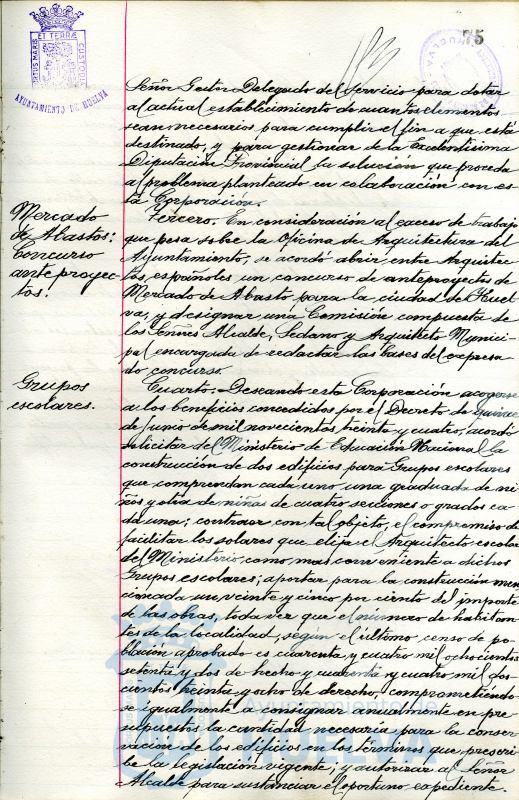 75
PORTUS MARIS
ET TERRÆ
CUSTODIA
AYUNTAMIENTO DE HUELVA
Señor Gestor Delegado del Servicio para dotar
al actual establecimiento de cuantos elementos
sean necesarios para cumplir el fin a que está
destinado, y para gestionar de la Excelentísima
Diputación Provincial la solución que proceda
al problema planteado en colaboración con es-
ta Corporación.
Mercado
de Abastos:
Concurso
anteproyec-
tos.
Tercero. En consideración al exceso de trabajo
que pesa sobre la Oficina de Arquitectura del
Ayuntamiento, se acordó abrir entre Arquitec-
tos, españoles un concurso de anteproyectos de
Mercado de Abasto para la ciudad de Huel-
va, y designar una Comisión compuesta de
los Señores Alcalde, Sedano y Arquitecto Munici-
pal encargada de redactar las bases del expresa-
do concurso.
Grupos
escolares.
Cuarto. Deseando esta Corporación acogerse
a los beneficios concedidos por el Decreto de quince
de junio de mil novecientos treinta y cuatro, acordó
solicitar del Ministerio de Educación Nacional la
construcción de dos edificios para Grupos escolares
que comprendan cada uno una graduada de ni-
ños y otra de niñas de cuatro secciones o grados ca-
da una; contraer con tal objeto, el compromiso de
facilitar los solares que elija el Arquitecto escolar
del Ministerio como mas conveniente a dichos
Grupos escolares; aportar para la construcción men-
cionada un veinte y cinco por ciento del importe
de las obras, toda vez que el número de habitan-
tes de la localidad, según el último censo de po-
blación aprobado es cuarenta y cuatro mil ochocientos
setenta y dos de hecho y cuarenta y cuatro mil dos-
cientos treinta y ocho de derecho, comprometiendo-
se igualmente a consignar anualmente en pre-
supuestos la cantidad necesaria para la conser-
vación de los edificios en los términos que prescri-
be la legislación vigente; y autorizar al Señor
Alcalde para sustanciar el oportuno expediente.
Ayuntamiento de
HUELVA